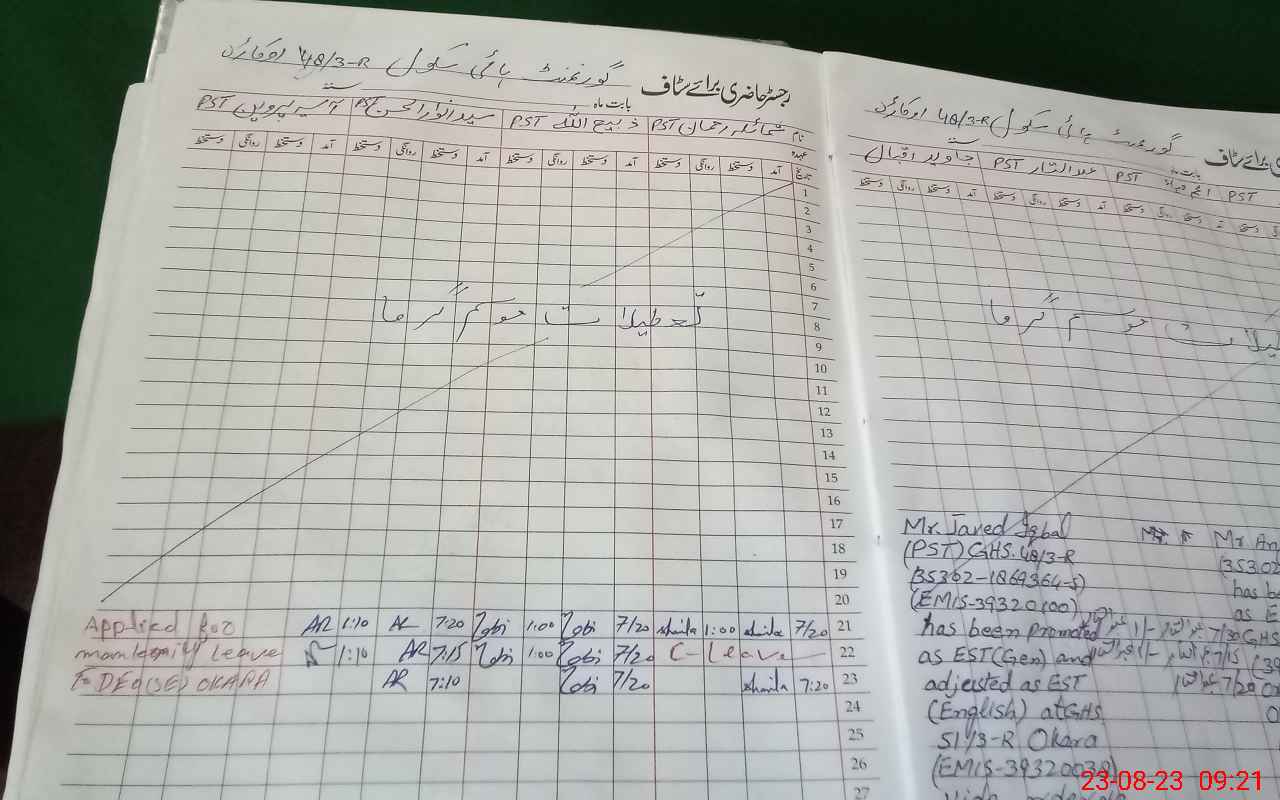 گورنمنٹ ہائی سکول 48/3-R اوکاڑہ
رجسٹر حاضری برائے سٹاف
بابت ماہ
نام شمائلہ رحمان PST ذبیح اللہ PST سید انوارالحسن PST آسیہ پروین PST
عہدہ
تاریخ آمد دستخط روانگی دستخط آمد دستخط روانگی دستخط آمد دستخط روانگی دستخط آمد دستخط روانگی دستخط
1
2
3
4
5
6
7
تعطیلات موسم گرما
8
9
10
11
12
13
14
15
16
17
18
19
20
Applied for AR 1:10 AR 7:20 Zabi 1:00 Zabi 7/20 shaila 1:00 shaila 7/20 21
leave 1:10 AR 7:15 Zabi 1:00 Zabi 7/20 C-Leave 22
To DEO(SE) OKARA AR 7:10 Zabi 7/20 shaila 7:20 23
24
25
26
27
گورنمنٹ ہائی سکول 48/3-R اوکاڑہ
برائے سٹاف
بابت ماہ
PST PST عبدالستار PST جاوید اقبال
آمد دستخط روانگی دستخط آمد دستخط روانگی دستخط
موسم گرما
Mr. Javed Iqbal
(PST) GHS. 48/3-R
(35302-1869364-5)
(EMIS-39320100)
has been promoted
as EST(Gen) and
adjusted as EST
(English) at GHS
51/3-R Okara
(EMIS-39320038)
Mr An
(35302
has be
as E
7/30 GHS
7/15 (39
7/20
23-08-23 09:21